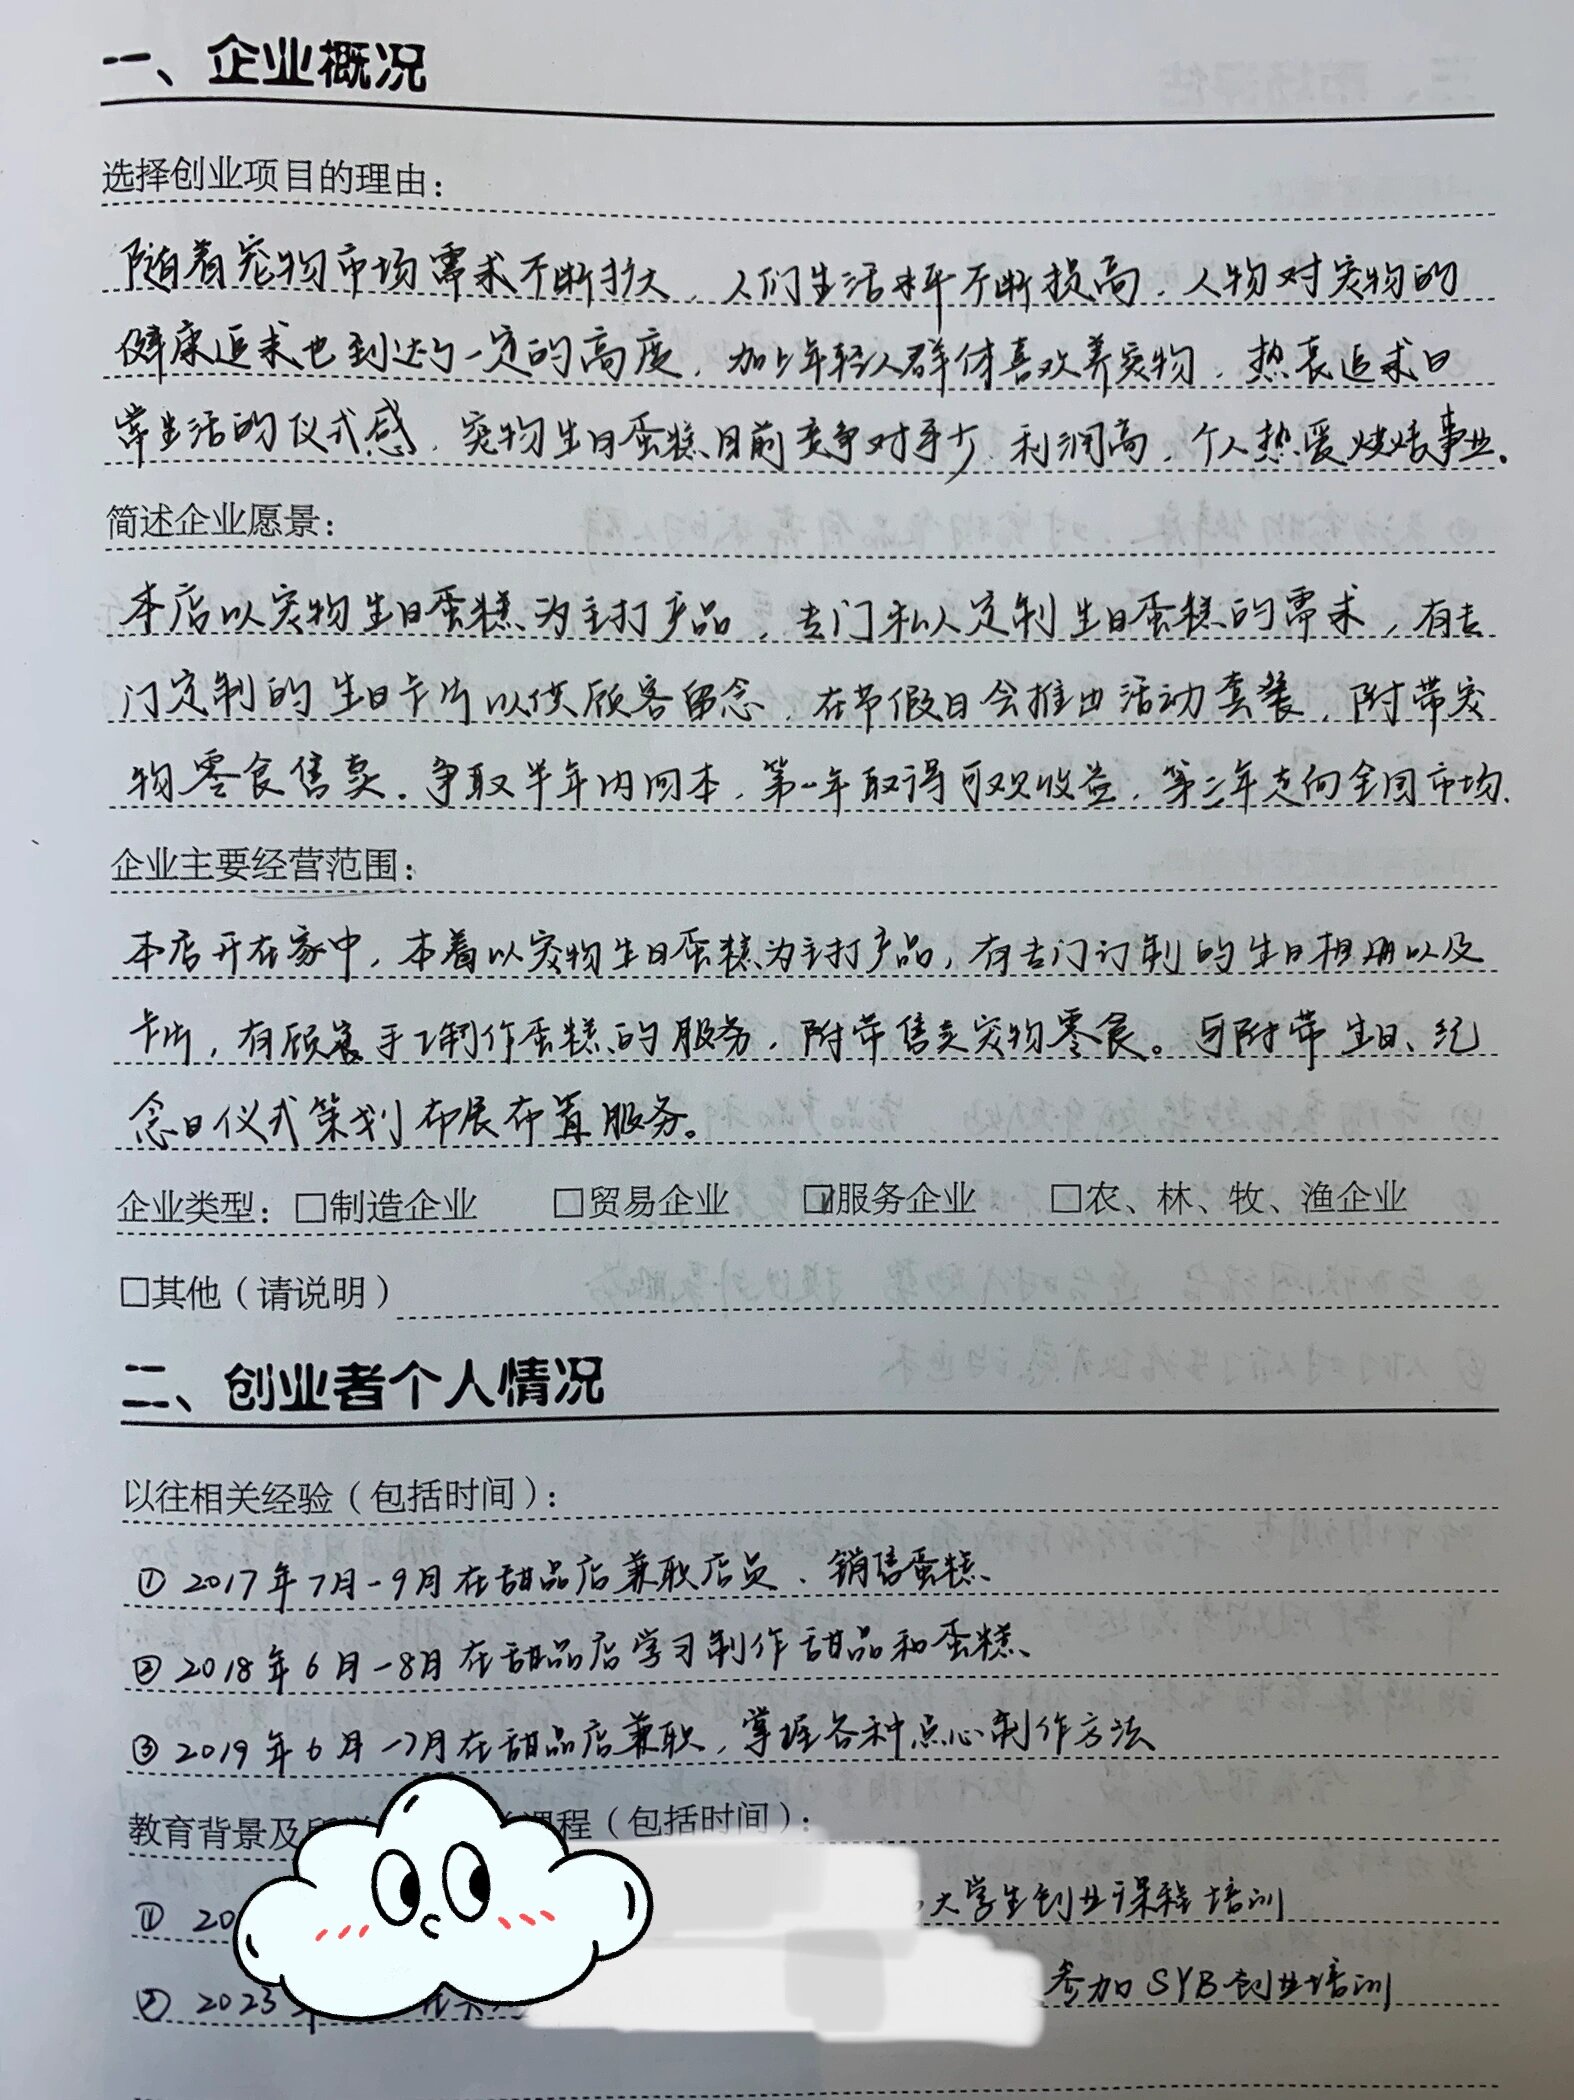 一、企业概况
选择创业项目的理由：
随着宠物市场需求不断扩大，人们生活水平不断提高，人物对宠物的
健康追求也到达了一定的高度，加上年轻人群体喜欢养宠物，热衷追求日
常生活的仪式感，宠物生日蛋糕目前竞争对手少，利润高，个人热爱烘焙事业。
简述企业愿景：
本店以宠物生日蛋糕为主打产品，专门私人定制生日蛋糕的需求，有专
门定制的生日卡片以供顾客留念，在节假日会推出活动套装，附带宠
物零食售卖。争取半年内回本，第一年取得可观收益，第二年走向全国市场。
企业主要经营范围：
本店开在家中，本着以宠物生日蛋糕为主打产品，有专门订制的生日相册以及
卡片，有顾客手工制作蛋糕的服务，附带售卖宠物零食。可附带生日、纪
念日仪式策划布展布置服务。
企业类型：□制造企业 □贸易企业 ☑服务企业 □农、林、牧、渔企业
□其他（请说明）
二、创业者个人情况
以往相关经验（包括时间）：
① 2017年7月-9月在甜品店兼职店员、销售蛋糕、
② 2018年6月-8月在甜品店学习制作甜品和蛋糕、
③ 2019年6月-7月在甜品店兼职，掌握各种点心制作方法
教育背景及 课程（包括时间）：
① 20 大学生创业课程培训
② 2023年 参加SYB创业培训